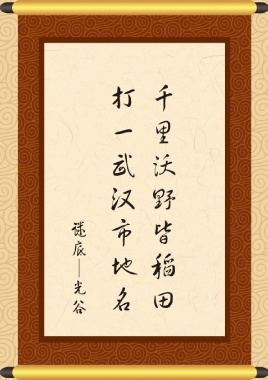 千里沃野皆稻田
打一武汉市地名
谜底——光谷